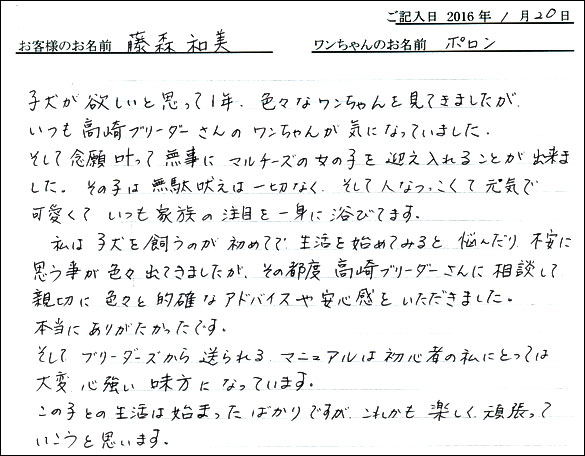 ご記入日 2016年 1月20日
お客様のお名前 藤森 和美 ワンちゃんのお名前 ポロン
子犬が欲しいと思って1年、色々なワンちゃんを見てきましたが、
いつも高崎ブリーダーさんのワンちゃんが気になっていました。
そして念願叶って無事にマルチーズの女の子を迎え入れることが出来ま
した。その子は無駄吠えは一切なく、そして人なつっこくて元気で
可愛くていつも家族の注目を一身に浴びてます。
私は子犬を飼うのが初めてで、生活を始めてみると悩んだり、不安に
思う事が色々出てきましたが、その都度高崎ブリーダーさんに相談して
親切に色々と的確なアドバイスや安心感をいただきました。
本当にありがたかったです。
そしてブリーダーズから送られるマニュアルは初心者の私にとっては
大変心強い味方になっています。
この子との生活は始まったばかりですが、これかも楽しく頑張って
いこうと思います。